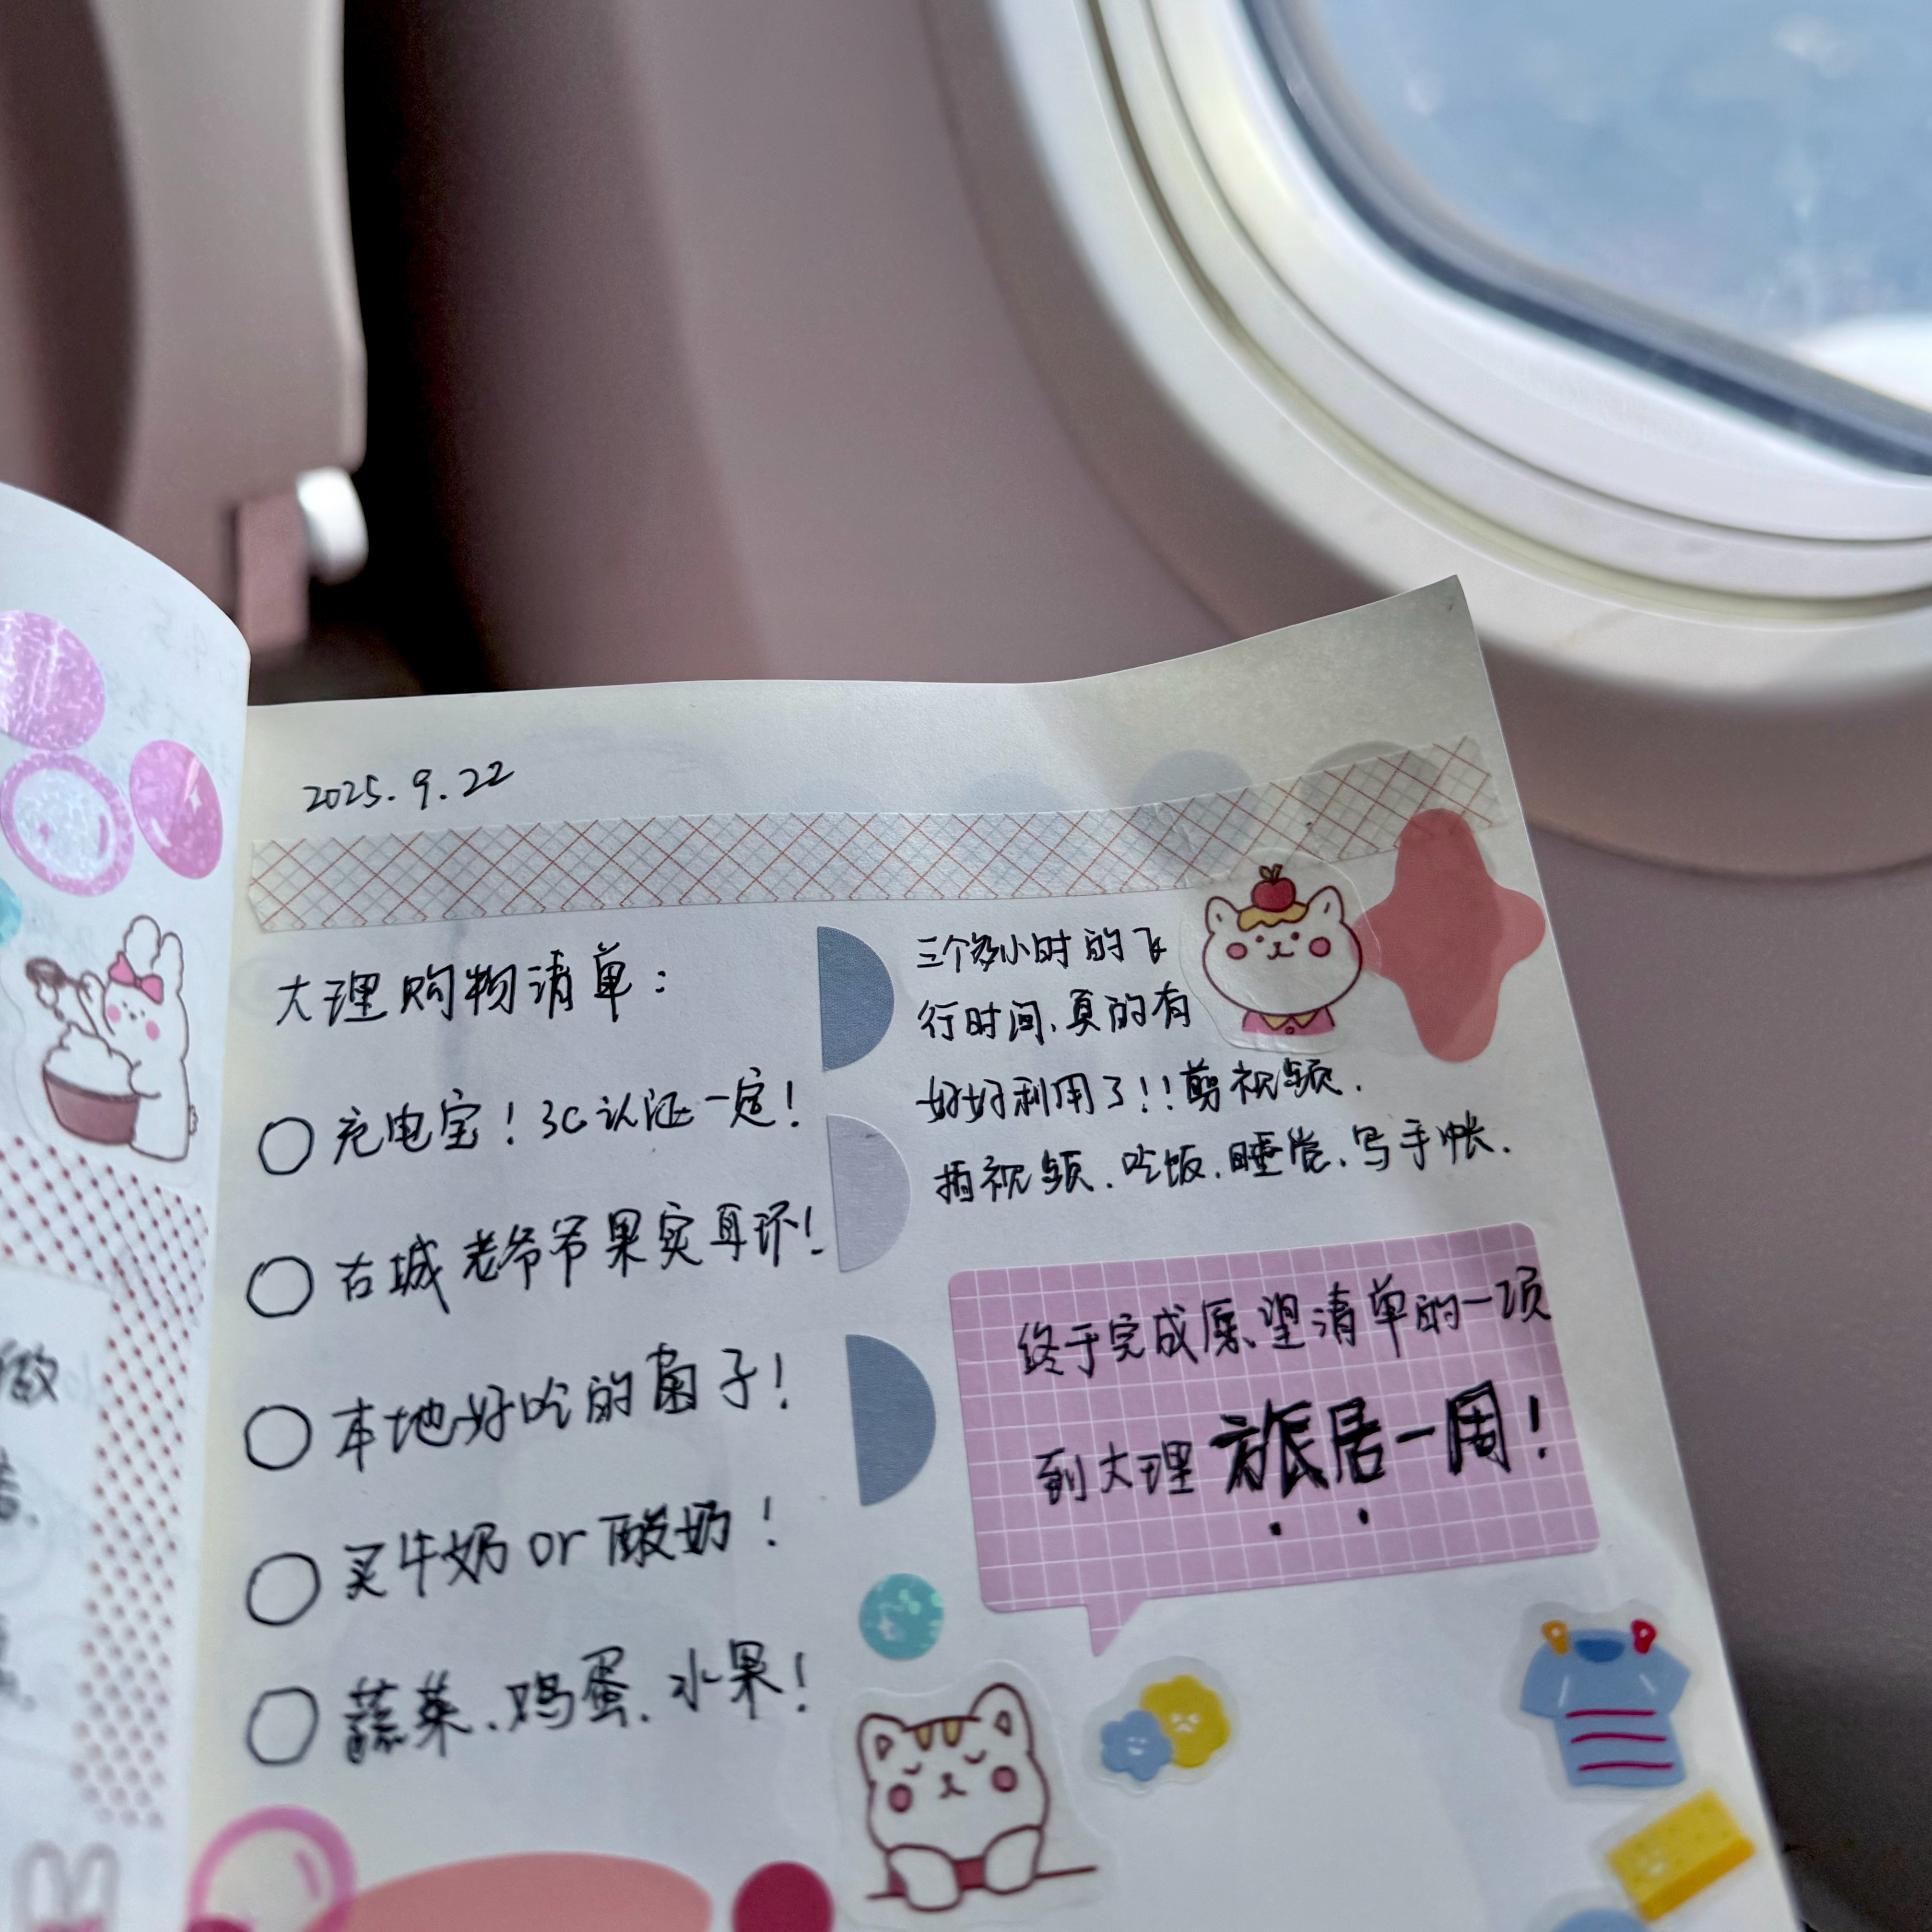 2025.9.22
大理购物清单:
充电宝!3C认证一定!
古城老爷爷果实耳环!
本地好吃的菌子!
买牛奶or酸奶!
蔬菜、鸡蛋、水果!
三个多小时的飞
行时间、真的有
好好利用了!!剪视频、
拍视频、吃饭、睡觉、写手帐.
终于完成愿望清单的一项
到大理旅居一周!
做